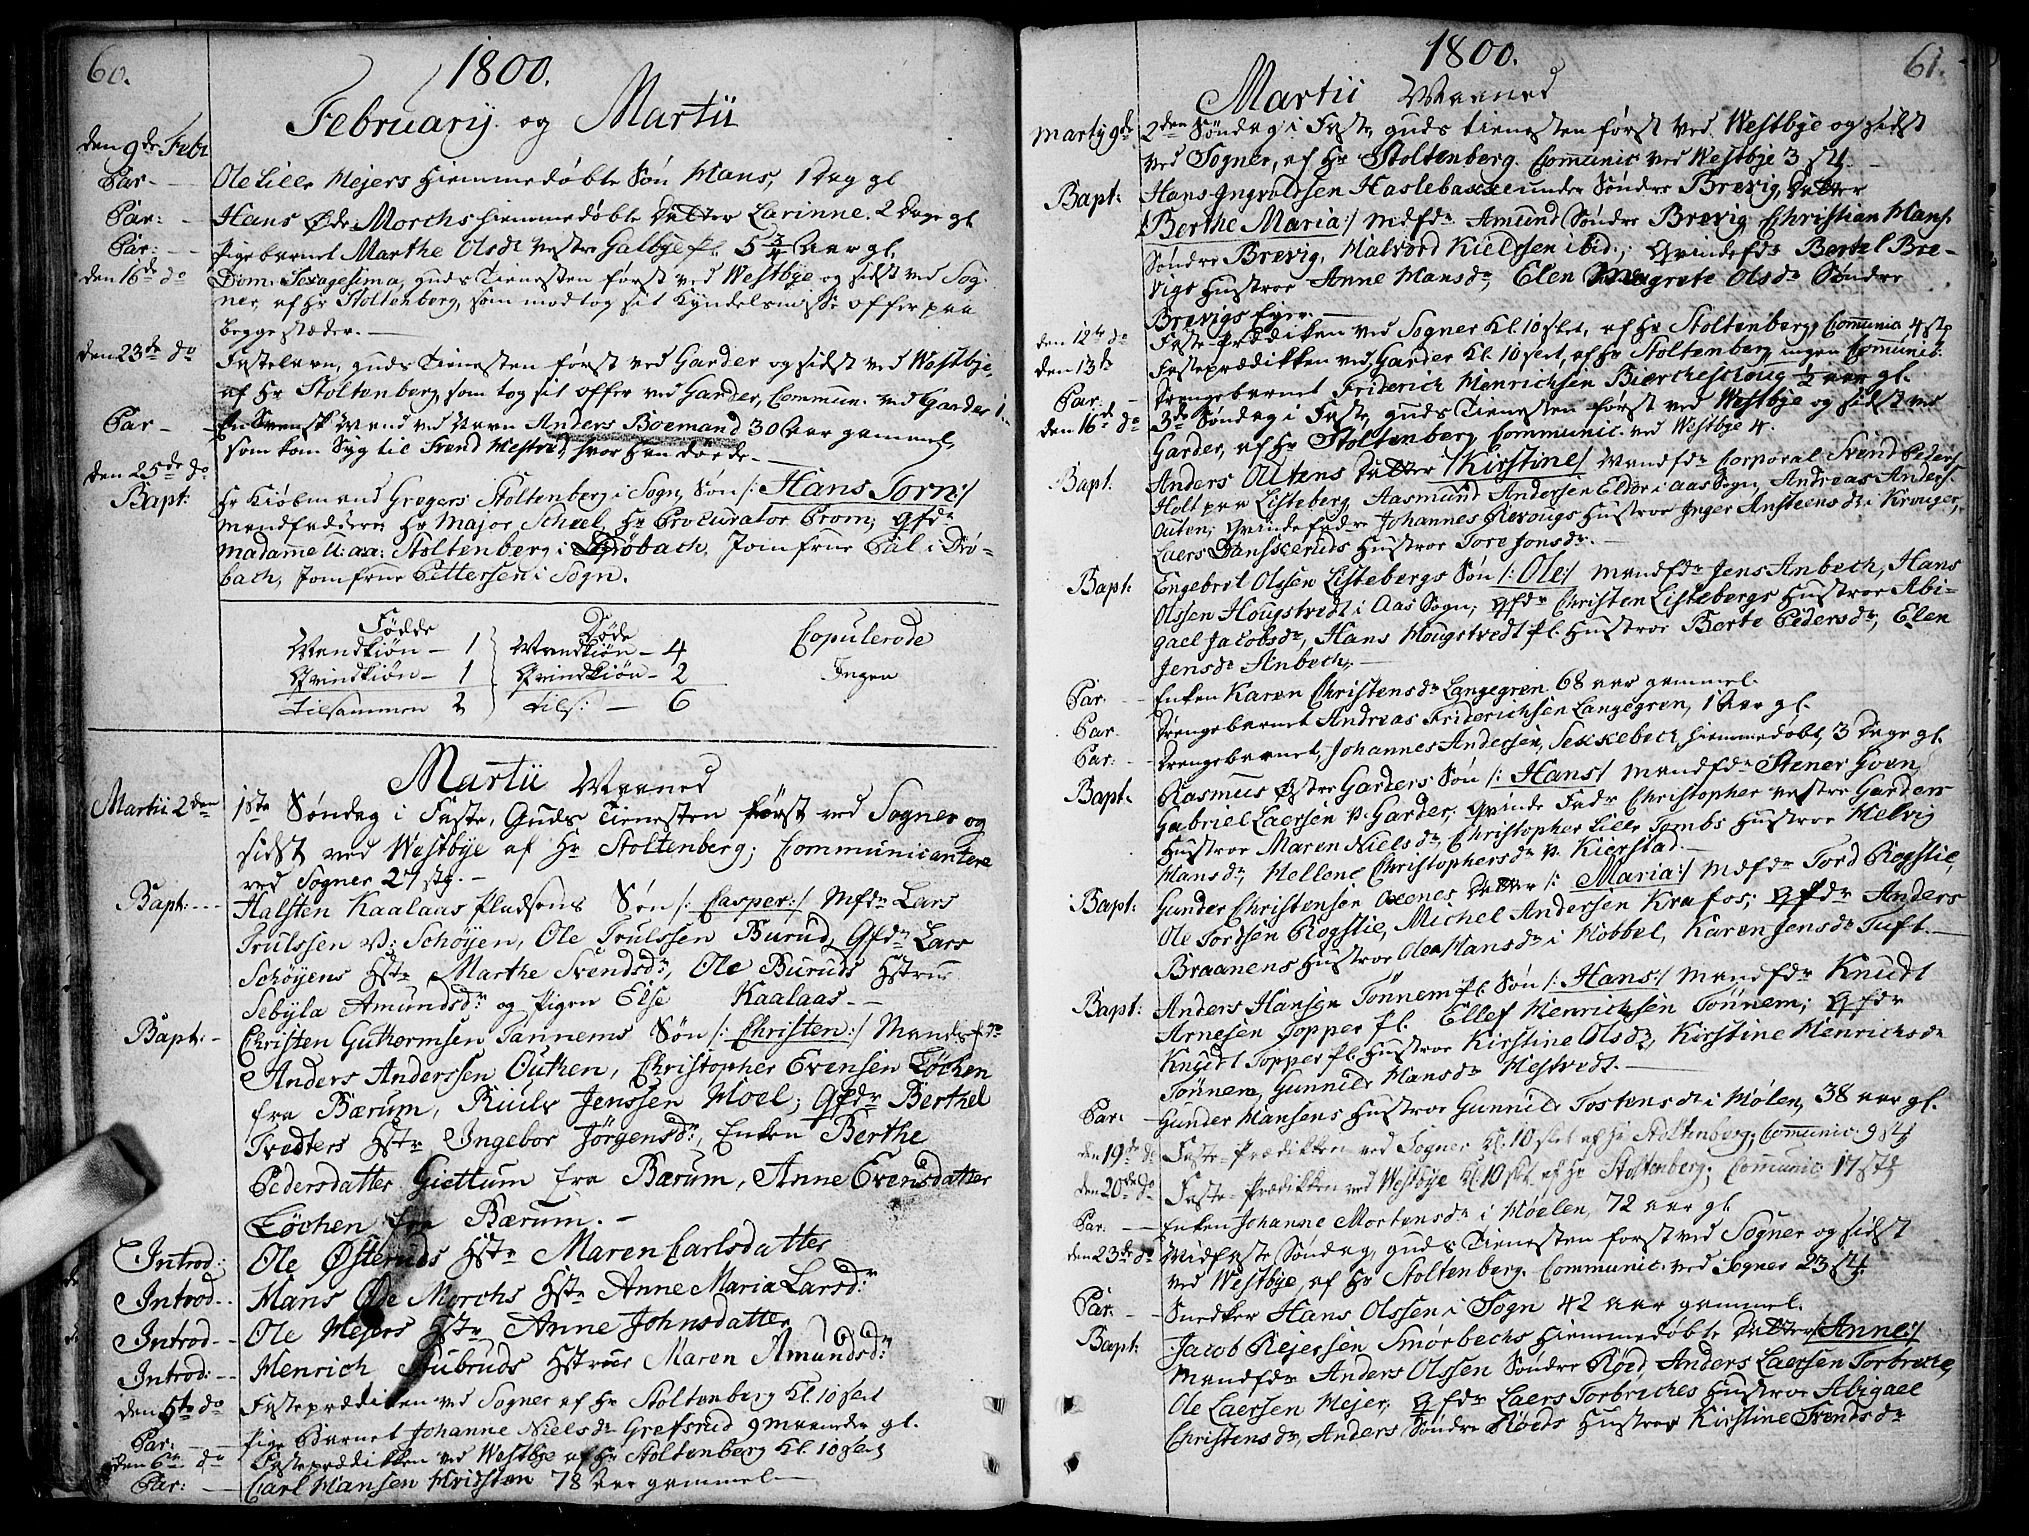 60.
1800.
Februarij og Martii
den 9de Febr
Par - - Ole Lille Mejers hiemmedøbte Søn Hans, 1 Dag gl
Par: - Hans Øde Morchs hiemmedøbte Datter Larinne. 2 Dage gl
Par: - Pigebarnet Marthe Olsdr Vestre Galbye pl. 5 3/4 Aar gl.
den 16de do Dom: Sexagesima, Guds Tienesten først ved Westbye og sidst ved Sog-
ner, af Hr Stoltenberg, som modtog sit Kyndelsmisse offer paa
begge stæder. -
den 23de do Fastelavn, Guds Tienesten først ved Garder og sidst ved Westbye,
af Hr Stoltenberg, som tog sit offer ved Garder, Commun. ved Garder 1.
Par - - En Svensk Mand ved Navn Anders Boemand 30 Aar gammel,
som kom Syg til hvor han døde. -
den 25de do
Bapt: Hr Kiøbmand Gregers Stoltenberg i Sogn, Søn /: Hans Torn :/
Mandfaddere Hr Major Scheel, Hr Procurator Prom; Qfdr
Madamme U: aa: Stoltenberg i Drøbach, Jomfrue Pal i Drø-
bach, Jomfrue Pettersen i Sogn.
Fødde Døde Copulerede
Mandkiøn - 1 Mandkiøn - 4 Ingen
Qvindkiøn - 1 Qvindkiøn - 2
Tilsammen 2 Tils: - 6
Martii Maaned
Martii 2den 1ste Søndag i Faste, Guds Tienesten først ved Sogner og
sidst ved Westbye af Hr Stoltenberg; Communicantere
ved Sogner 27 stk. -
Bapt: - - Halsten Kaalaas Pladsens Søn /: Casper :/ Mfdr Lars
Trulssen V: Schøyen, Ole Trulssen Burud, Qfdr Lars
Schøyens Hstr Marthe Svendsdr, Ole Buruds Hstrue
Sebyla Amundsdr og Pigen Else Kaalaas. -
Bapt: - Christen Guttormsen Tannems Søn /: Christen :/ Mandsfdr
Anders Anderssen Outhen, Christopher Evensen Løchen
fra Bærum, Jenssen Moel; Qfdr Berthel
Tvedters Hstr Ingebor Jørgensdr, Enken Berthe
Pedersdatter Giettum fra Bærum, Anne Evensdatter
Løchen fra Bærum. -
Introd: Ole Østeruds Hstr Maren Carlsdatter
Introd - Hans Øde Morchs Hstr Anne Maria Larsdr
Introd - Ole Mejers Hstr Anne Johnsdatter
Introd: - Henrich Stubruds Hstrue Maren Amundsdr
den 5te do Fasteprædiken ved Sogner af Hr Stoltenberg Kl. 10 slet
Par: - Pige Barnet Johanne Nielsdr Grefsrud 9 Maaneder gl.
den 6te do Fasteprædikken ved Westbye af Hr Stoltenberg Kl. 10 slet
Par: - Carl Hansen Hvidsten 78 Aar gammel -
1800.
61.
Martii Maaned
Martij 9de 2den Søndag i Faste, Guds Tienesten først ved Westbye og sidst
ved Sogner, af Hr Stoltenberg. Communic ved Westbye 3 stk. -
Bapt: Hans Ingvoldsen Haslebakke under Søndre Brevig, Datter
/: Berthe Maria :/ Mdfdr Amund Søndre Brevig, Christian Hans.
Søndre Brevig, Halvord Kielssen ibid:; Qvindefdr Berthel Bre-
vigs Hustroe Anne Hansdr, Elen Magrete Olsdr Søndre
Brevigs Ejer. -
den 12te do Faste Prædikken ved Sogner Kl. 10 slet, af Hr Stoltenberg, Communic 4 stk
den 13de Fasteprædikken ved Garder Kl. 10 slet, af Hr Stoltenberg, ingen Communic:
Par. - Drengebarnet Friderich Henrichsen Biercheschoug 1/2 aar gl.
den 16de do 3de Søndag i Faste, Guds Tienesten først ved Westbye og sidst ved
Garder, af Hr Stoltenberg Communic. ved Westbye 4.
Bapt. Anders Outens Datter /: Kirstine :/ Mandfdr Corporal Svend Peders.
Holt paa Listeberg, Aasmund Andersen Eldor i Aas Sogn, Andreas Anders.
Outen; Qvindefadre Johannes Revougs Hustroe Inger Ansteensdr Krouger,
Laers Danskeruds Hustroe Tore Jonsdr. -
Bapt: Engebret Olssen Listebergs Søn /: Ole :/ Mandfdr Jens Anbech, Hans
Olssen Hougstvedt i Aas Sogn; Qfdr Christen Listebergs Hustroe Abi-
gael Jacobsdr, Hans Hougstvedt pl. Hustroe Berte Pedersdr, Elen
Jensdr Anbech, -
Par - Enken Karen Christensdr Langegren 68 aar gammel.
Par. Drengebarnet Andreas Friderichsen Langegren, 1 Aar gl.
Par: - Drengebarnet, Johannes Andersen, Sekkebech, hiemmedøbt, 3 Dage gl.
Bapt. Rasmus Østre Garders Søn /: Hans / Mandfdr Stener Goen,
Gabriel Laersen V. Garder; Qvinde Fadr Christopher Vestre Garders
Hustroe Maren Nielsdr, Christopher Lille Tombs Hustroe Helvig
Hansdr, Hellene Christophersdr V. Kierstad. -
Bapt: Gunder Christensen Oxenes Datter /: Maria :/ Mdfdr Tord Rogstie,
Ole Tordsen Rogstie, Michel Andersen Krafos; Qfdr Anders
Braanens Hustroe Olea Hansdr i Hobbel, Karen Jensdr Tuft. -
Bapt: Anders Hansen Tønnem pl. Søn /: Hans :/ Mandfdr Knudt
Arnesen Topper pl. Ellef Henrichsen Tønnem; Qfdr
Knudt Topper pl. Hustroe Kirstine Olsdr, Kirstine Henrichsdr
Tønnem, Gunnild Hansdr Hestvedt. -
Par: - Gunder Hansens Hustroe Gunnild Tostensdr i Mølen, 38 aar gl.
den 19de do Faste-Prædikken ved Sogner Kl. 10 slet af Hr Stoltenberg; Communic: 9 stk
den 20de do Faste-Prædikken ved Westbye Kl. 10 slet, af Hr Stoltenberg; Communic 17 stk
Par: - Enken Johanne Mortensdr i Møelen, 72 aar gl.
den 23de do Midfaste Søndag, Guds Tienesten først ved Sogner og sidst
ved Westbye, af Hr Stoltenberg. Communic. ved Sogner 23 stk.
Par. - Snedker Hans Olssen i Sogn 42 aar gammel.
Bapt: Jacob Rejersen Smørbechs hiemmedøbte Datter /: Anne :/
Mandfdr Anders Olssen Søndre Røed, Anders Laersen Torbreche,
Ole Laersen Mejer, Qfdr Laers Torbriches Hustroe Abigael
Christensdr, Anders Søndre Røeds Hustroe Kirstine Svendsdr